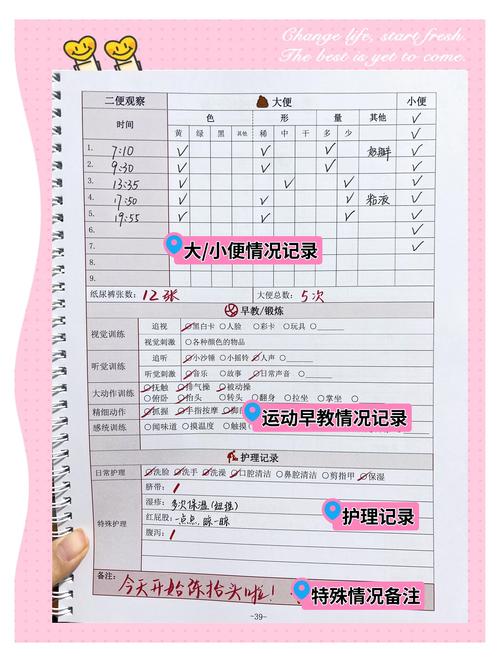 Change life, start fresh.
The best is yet to come.
二便观察 大便 小便
时间 色 形 量 其他 ✓
黄 绿 黑 其他 稀 中 干 多 少 ✓
1. 7:10 ✓ ✓ ✓ 奶瓣 ✓
2. 9:30 ✓ ✓ ✓ ✓
3. 13:35 ✓ ✓ ✓ ✓
4. 17:50 ✓ ✓ ✓ 粘液 ✓
5. 19:55 ✓ ✓ ✓ ✓
6. ✓
7. ✓
8.
9.
大/小便情况记录
纸尿裤张数: 12张 大便总数: 5次
早教/锻炼
视觉训练 追视 黑白卡 人脸 彩卡 玩具
视觉刺激 各种颜色的物品
听觉训练 追听 小沙锤 小摇铃 人声
听觉刺激 音乐 故事 日常声音
大动作训练 抚触 排气操 被动操
俯卧 抬头 转头 翻身 拉坐 掌坐
精细动作 抓握 手指按摩
感统训练 闻味道 摸温度 触摸
运动早教情况记录
护理记录
日常护理 洗脸 洗手 洗澡 口腔清洁 鼻腔清洁 剪指甲 保湿
特殊护理 脐带:
湿疹: 多次保湿
红屁股: 一点点
腹泻:
护理记录
备注: 今天开始练抬头啦!
特殊情况备注
-39-